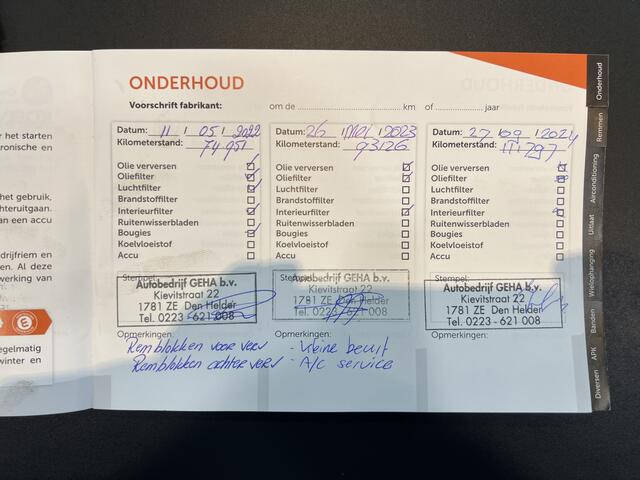 ONDERHOUD
Voorschrift fabrikant: om de km of jaar
Datum: 11 / 05 / 2022
Kilometerstand: 74951
Olie verversen
Oliefilter
Luchtfilter
Brandstoffilter
Interieurfilter
Ruitenwisserbladen
Bougies
Koelvloeistof
Accu
Stempel:
Autobedrijf GEHA b.v.
Kievitstraat 22
1781 ZE Den Helder
Tel. 0223 - 621 008
Opmerkingen:
Remblokken voor verv
Remblokken achter verv
Datum: 26 / mei / 2023
Kilometerstand: 93126
Olie verversen
Oliefilter
Luchtfilter
Brandstoffilter
Interieurfilter
Ruitenwisserbladen
Bougies
Koelvloeistof
Accu
Autobedrijf GEHA b.v.
Kievitstraat 22
1781 ZE Den Helder
Tel. 0223 - 621 008
Opmerkingen:
- kleine beurt
- A/c service
Datum: 27 / 09 / 2024
Kilometerstand: 111797
Olie verversen
Oliefilter
Luchtfilter
Brandstoffilter
Interieurfilter
Ruitenwisserbladen
Bougies
Koelvloeistof
Accu
Stempel:
Autobedrijf GEHA b.v.
Kievitstraat 22
1781 ZE Den Helder
Tel. 0223 - 621 008
Opmerkingen:
Onderhoud
Remmen
Airconditioning
Uitlaat
Wielophanging
Banden
APK
Diversen
het starten
ronische en
het gebruik,
chteruitgaan.
an een accu
drijfriem en
en. Al deze
werking van
egelmatig
winter en